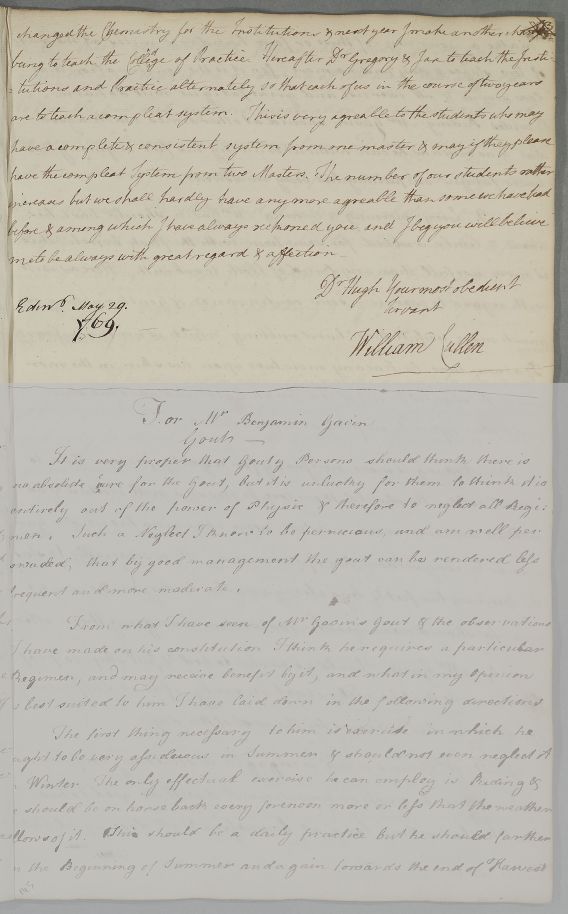 changed the Chemistry for the Institutions & next year I make another change
being to teach the College of Practice. Hereafter Dr Gregory & I are to teach the Insti-
-tutions and Practice alternately so that each of us in the course of two years
are to teach a compleat system. This is very agreable to the students who may
have a complete & consistent system from one master & may if they please
have the compleat System from two Masters. The number of our students rather
increases but we shall hardly have any more agreable than some we have had
before & among which I have always reckoned you and I beg you will believe
me to be always with great regard & affection
Dr Hugh Your most obedient
Servant
Edinr. May 29.
1769.
William Cullen
For Mr Benjamin Gavin
Gout
It is very proper that Gouty Persons should think there is
no absolute cure for the Gout, but it is unlucky for them to think it is
entirely out of the power of Physic & therefore to neglect all Regi-
men. Such a Neglect I know to be pernicious, and am well per
suaded, that by good management the gout can be rendered less
frequent and more moderate.
From what I have seen of Mr Gavin's Gout & the observations
I have made on his constitution I think he requires a particular
Regimen, and may receive benefit by it, and what in my Opinion
is best suited to him I have laid down in the following directions
The first thing necessary to him is exercise in which he
ought to be very assiduous in Summer & should not even neglect it
in Winter. The only effectual exercise he can employ is Riding &
he should be on horseback every forenoon more or less that the weather
allows of it. This should be a daily practice but he should farther
in the Beginning of Summer and again towards the end of Harvest